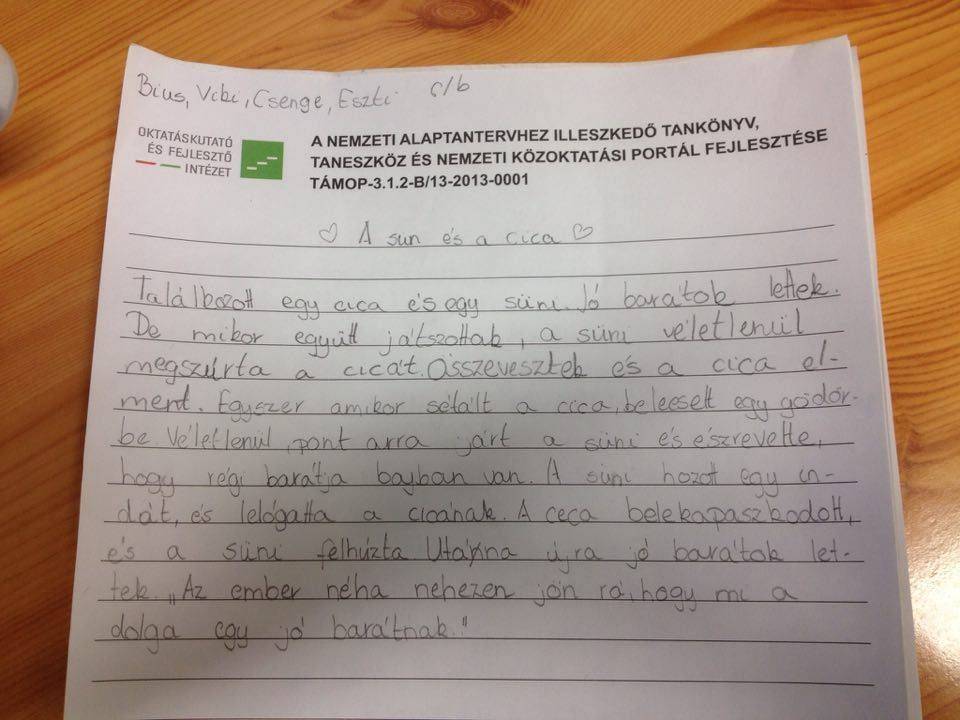 Bius, Vibi, Csenge, Eszti c/b
OKTATÁSKUTATÓ
ÉS FEJLESZTŐ
INTÉZET
A NEMZETI ALAPTANTERVHEZ ILLESZKEDŐ TANKÖNYV,
TANESZKÖZ ÉS NEMZETI KÖZOKTATÁSI PORTÁL FEJLESZTÉSE
TÁMOP-3.1.2-B/13-2013-0001
♡ A sun és a cica ♡
Találkozott egy cica és egy süni. Jó barátok lettek.
De mikor együtt játszottak, a süni véletlenül
megszúrta a cicát. Összevesztek és a cica el-
ment. Egyszer amikor sétált a cica, beleesett egy gödör-
be. Véletlenül, pont arra járt a süni és észrevette,
hogy régi barátja bajban van. A süni hozott egy in-
dát, és lelógatta a cicának. A ceca belekapaszkodott,
és a süni felhúzta. Utána újra jó barátok let-
tek. „Az ember néha nehezen jön rá, hogy mi a
dolga egy jó barátnak."